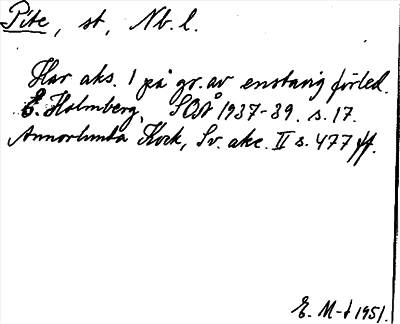 Pite, st, Nb. l.
Har aks. 1 på gr. av enstavig förled.
E. Holmberg, SOÅ 1937-39. s. 17.
Annorlunda Kock, Sv. akc. II s. 477 ff.
E. M-t 1951.